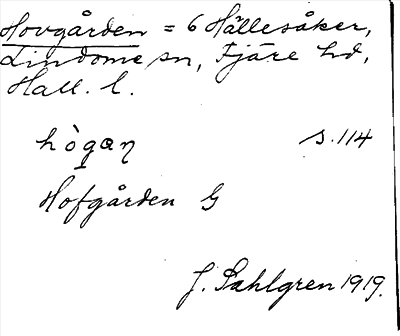 Hovgården = 6 Hällesåker,
Lindome sn, Fjäre hd,
Hall. l.
hògaņ s. 114
Hofgården G
J. Sahlgren 1919.